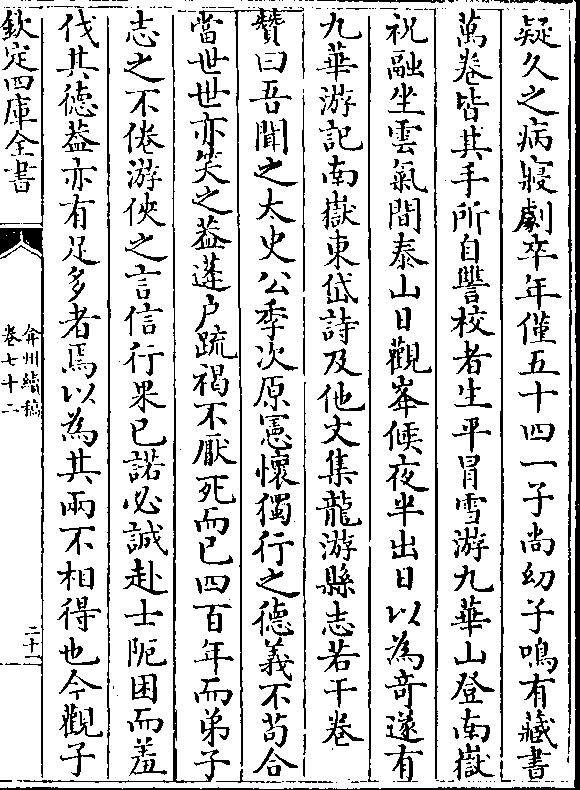 疑久之病寢劇卒年僅五十四一子尚幼子鳴有藏書
萬卷皆其手所自讐校者生平冒雪游九華山登南嶽
祝融坐雲氣間泰山日觀峯候夜半出日以為奇遂有
九華游記南嶽東岱詩及他文集龍游縣志若干卷
贊曰吾聞之太史公季次原憲懷獨行之德義不茍合
當世世亦笑之葢蓬户疏褐不厭死而已四百年而弟子
志之不倦游俠之言信行果已諾必誠赴士阨困而羞
伐其德葢亦有足多者焉以為其兩不相得也今觀子
欽定四庫全書
弇州續稿
卷七十二
二十一